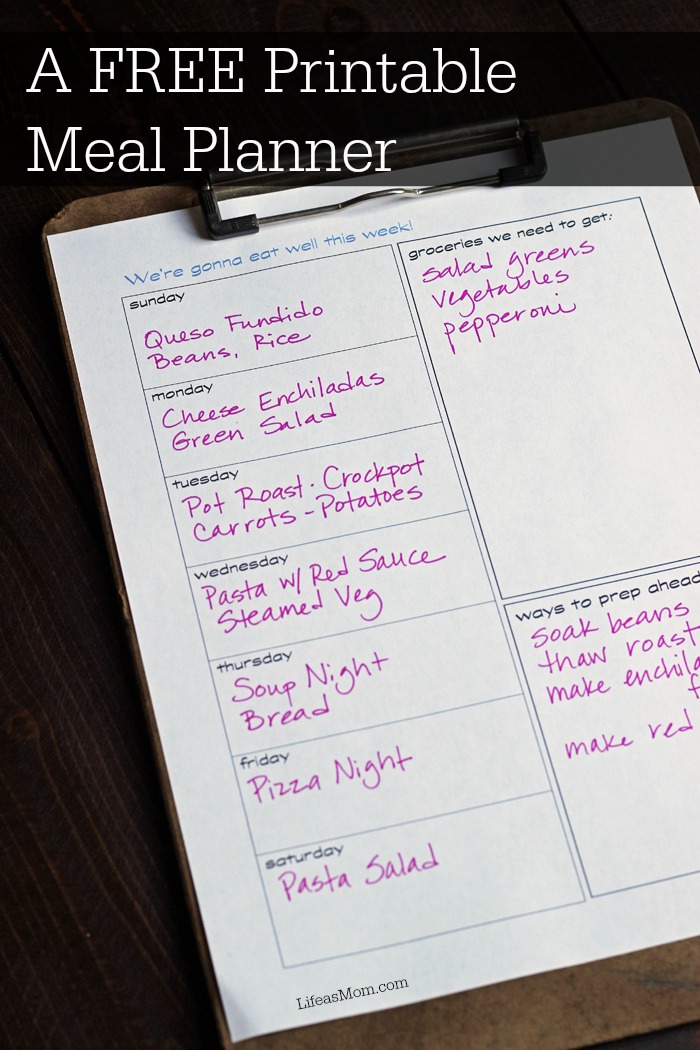 A FREE Printable
Meal Planner
We're gonna eat well this week!
sunday
Queso Fundido
Beans, Rice
monday
Cheese Enchiladas
Green Salad
tuesday
Pot Roast - Crockpot
Carrots - Potatoes
wednesday
Pasta w/ Red Sauce
Steamed Veg
thursday
Soup Night
Bread
friday
Pizza Night
saturday
Pasta Salad
groceries we need to get:
salad greens
vegetables
pepperoni
ways to prep ahead
soak beans
thaw roast
make
make red
LifeasMom.com